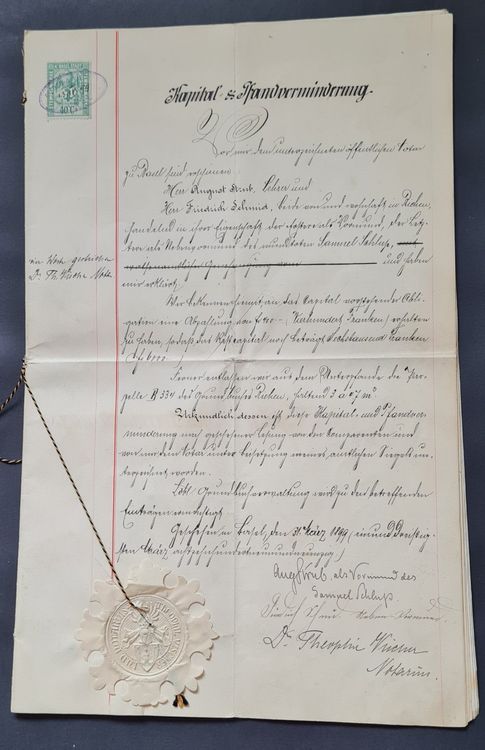 Kapital- & Pfandverminderung.
Vor mir dem unterzeichneten öffentlichen Notar
zu Basel sind erschienen:
Herr August Strub, Lehrer und
Herr Friedrich Schmid, beide von und wohnhaft in Riehen,
handelnd in ihrer Eigenschaft der Erstere als Vormund, der Letz-
tere als Nebenvormund des mundtoten Samuel Schlup,
und haben
mir erklärt:
ein Wort gestrichen
Dr. Th. Notar
Wir bekennen hiemit an das Capital vorstehender Obli-
gation eine Abzahlung von f 400.- (Vierhundert Franken) erhalten
zu haben, so daß das Restcapital noch beträgt Sechstausend Franken
(f 6000.-)
Ferner entlassen wir aus dem Unterpfande die Par-
zelle A 334 des Grundbuches Riehen, haltend 3 a 07 m²
Urkundlich dessen ist diese Kapital- und Pfandver-
minderung nach geschehener Lesung von den Comparenten und
von mir dem Notar unter Beisetzung meines amtlichen Siegels un-
terzeichnet worden.
Löbl. Grundbuchverwaltung wird zu den betreffenden
Einträgen ermächtigt.
Geschehen in Basel, den 31. März 1899 (einunddreißig-
sten März achtzehnhundertneunundneunzig)
Aug. Strub, als Vormund des
Samuel Schlup
Dr. Theophil
Notarius.